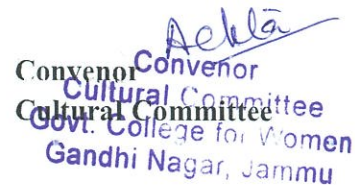 Convenor
Cultural Committee
Convenor
Cultural Committee
Govt. College for Women
Gandhi Nagar, Jammu